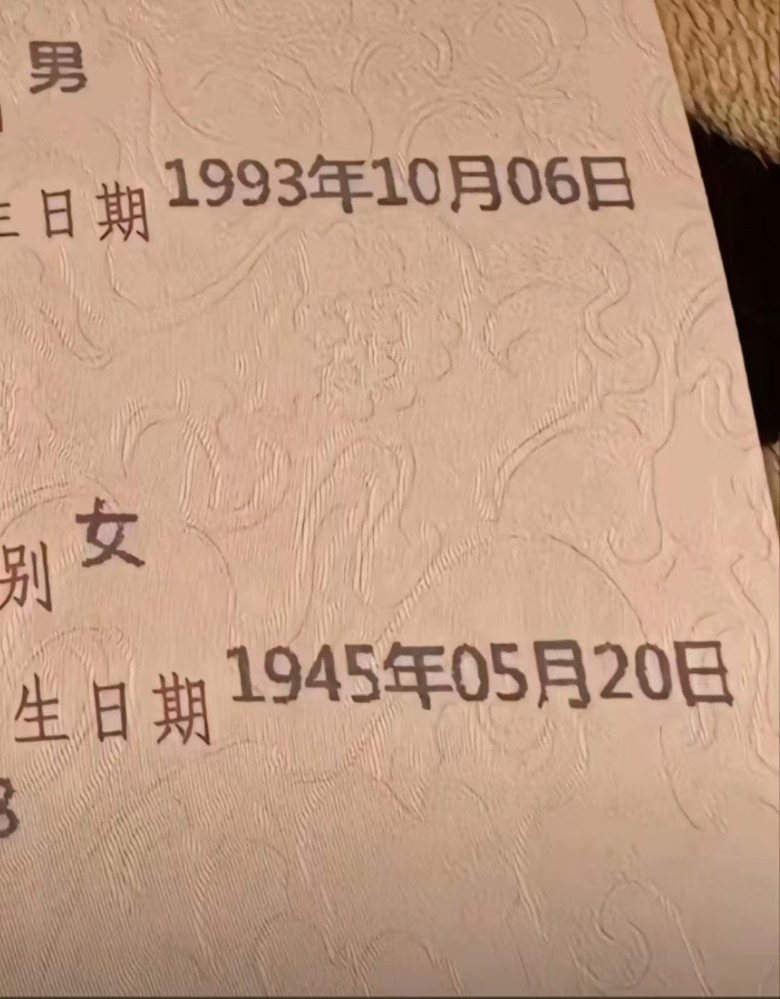 男
生日期 1993年10月06日
别 女
生日期 1945年05月20日